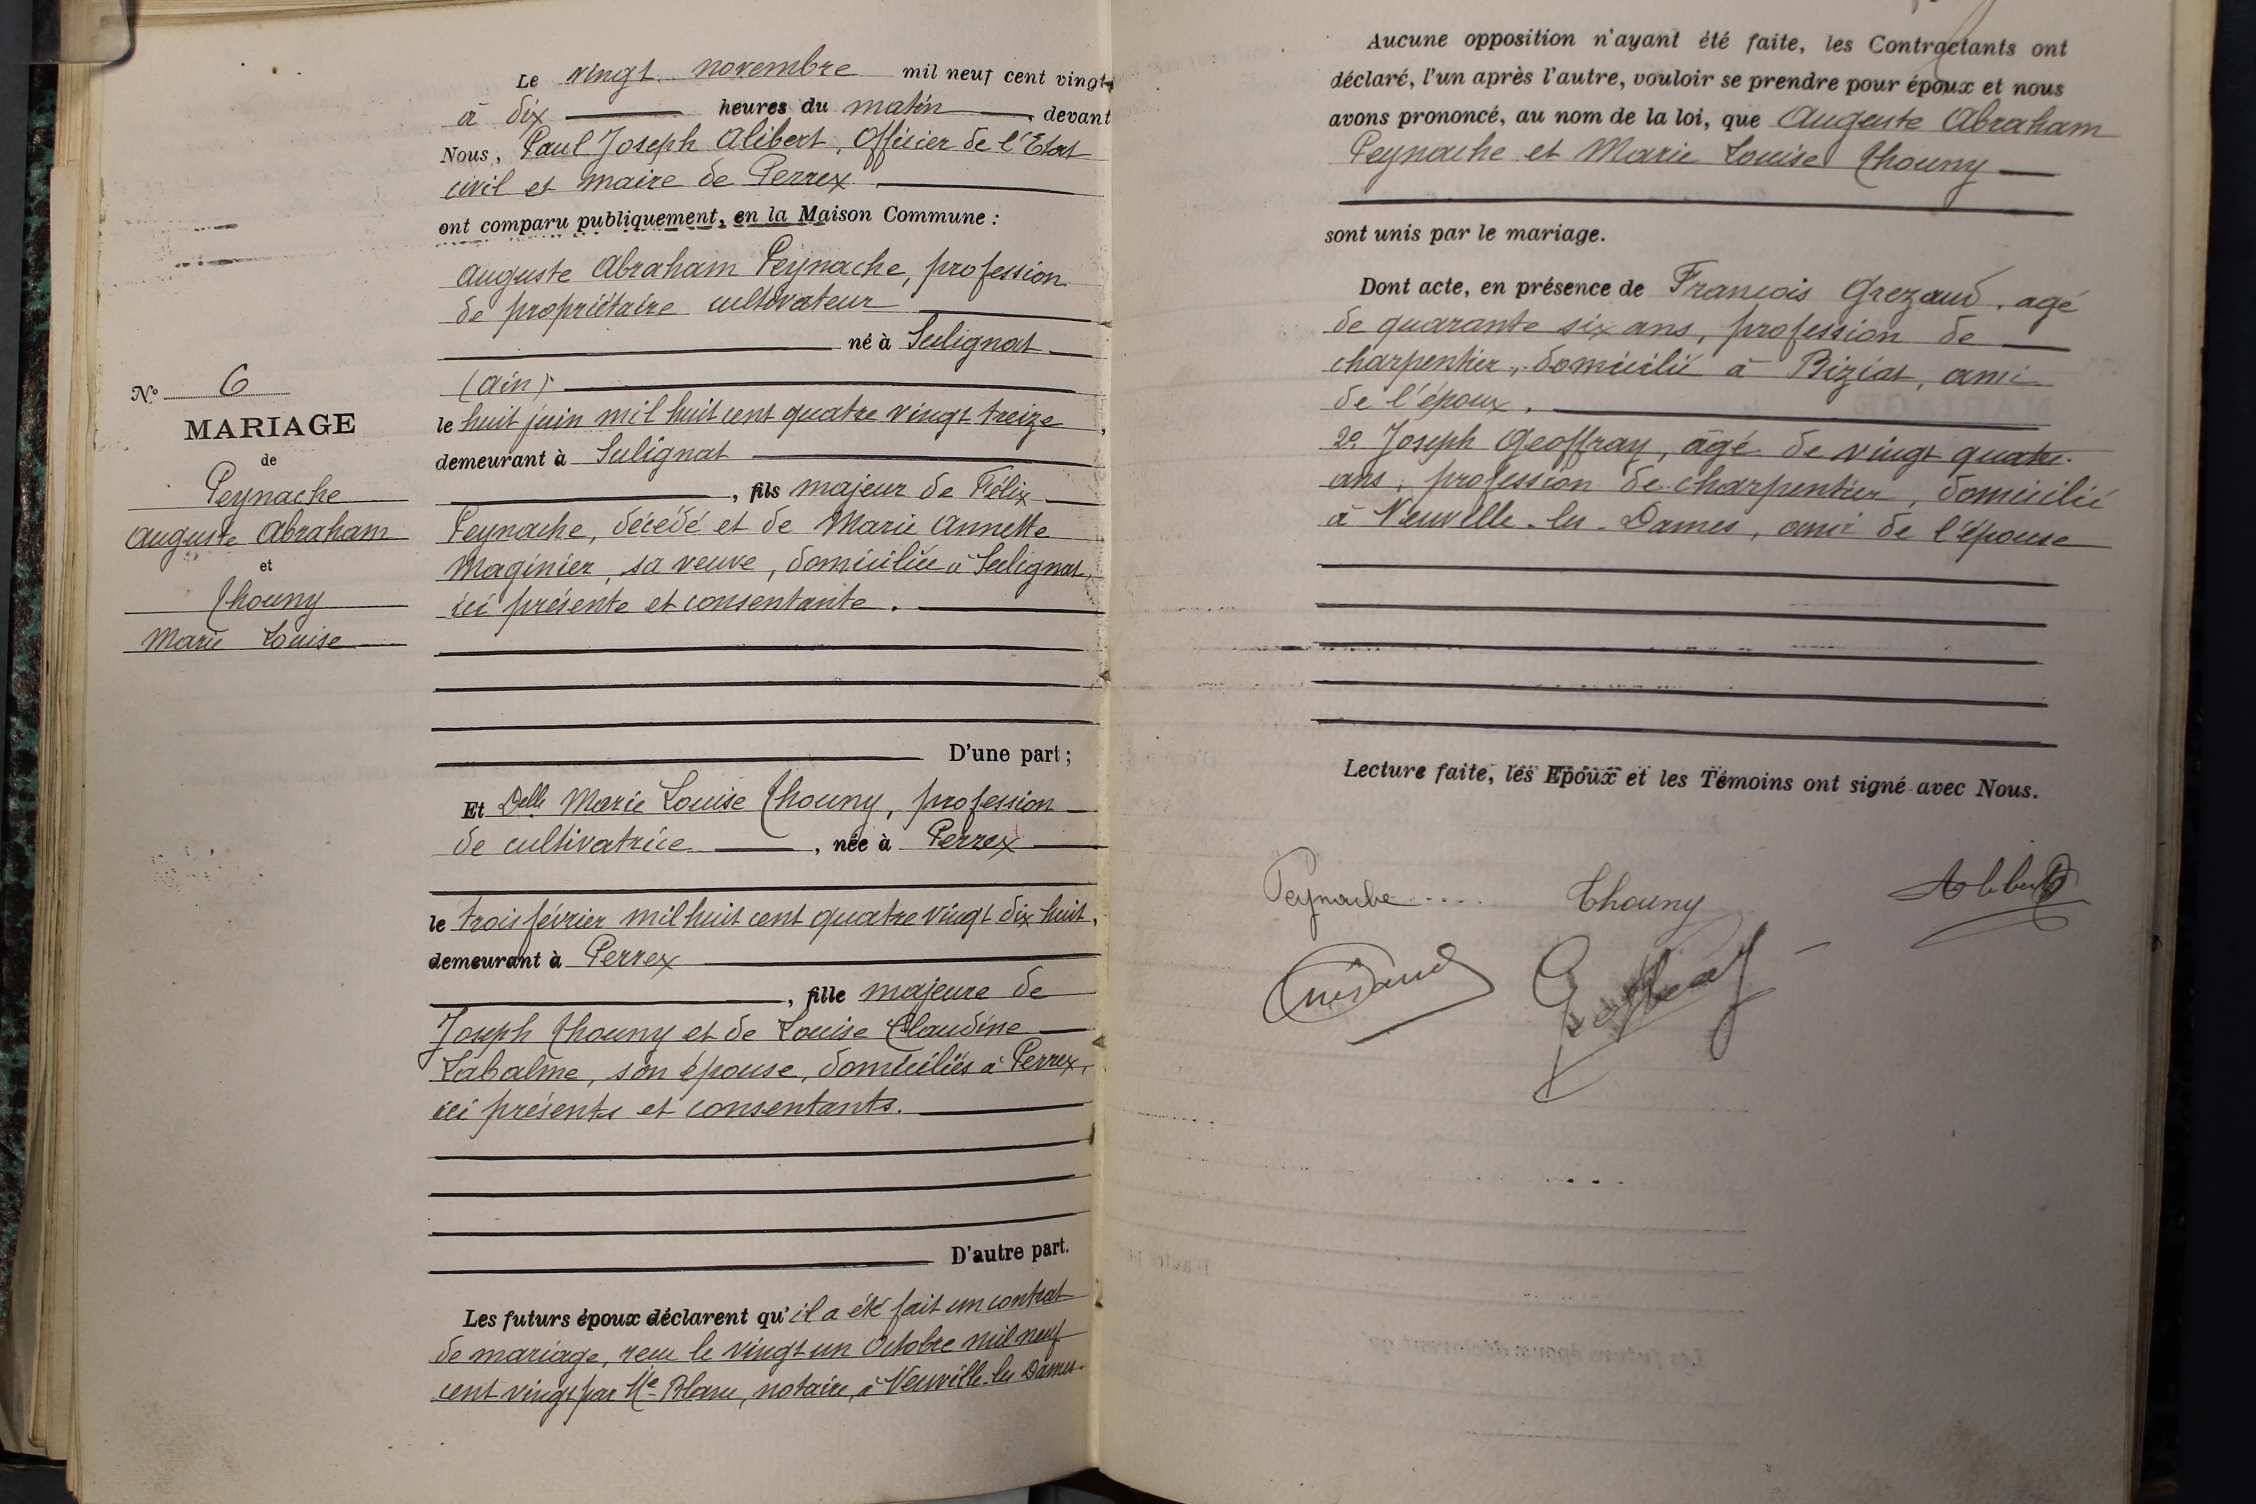 Le vingt novembre mil neuf cent vingt
à dix heures du matin, devant
Nous, Paul Joseph Alibert, Officier de l'Etat
civil et maire de Perrex
ont comparu publiquement, en la Maison Commune :
Auguste Abraham Peynache, profession
de propriétaire cultivateur
né à Sulignat
(Ain)
le huit juin mil huit cent quatre vingt treize,
demeurant à Sulignat
, fils majeur de Félix
Peynache, décédé et de Marie Annette
Maginier, sa veuve, domiciliée à Sulignat,
ici présente et consentante.
D'une part ;
N° 6
MARIAGE
de
Peynache
Auguste Abraham
et
Thouny
Marie Louise
Et Delle Marie Louise Thouny, profession
de cultivatrice, née à Perrex
le trois février mil huit cent quatre vingt dix huit,
demeurant à Perrex
, fille majeure de
Joseph Thouny et de Louise Claudine
Labalme, son épouse, domiciliés à Perrex,
ici présents et consentants.
D'autre part.
Les futurs époux déclarent qu'il a été fait un contrat
de mariage, reçu le vingt un Octobre mil neuf
cent vingt par Me Blanc, notaire, à Neuville-les-Dames.
Aucune opposition n'ayant été faite, les Contractants ont
déclaré, l'un après l'autre, vouloir se prendre pour époux et nous
avons prononcé, au nom de la loi, que Auguste Abraham
Peynache et Marie Louise Thouny
sont unis par le mariage.
Dont acte, en présence de François Grezaud, agé
de quarante six ans, profession de
charpentier, domicilié à Biziat, ami
de l'époux.
2° Joseph Geoffray, âgé de vingt quatre
ans, profession de charpentier, domicilié
à Neuville-les-Dames, ami de l'épouse
Lecture faite, les Epoux et les Témoins ont signé avec Nous.
Peynache
Thouny
Alibert
Geoffray